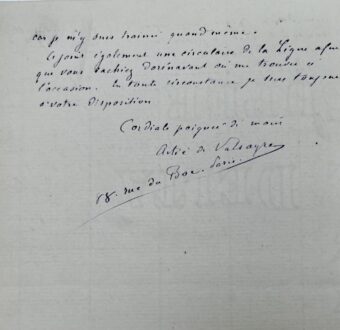 car je m'y suis trainé quand même.
Ce joint également une circulaire de la Ligue afin
que vous sachiez dorénavant où me trouver à
l'occasion. En toute circonstance je suis toujours
à votre disposition
Cordiale poignée de main
Astié de Valsayre
18. rue du Bac. Paris.